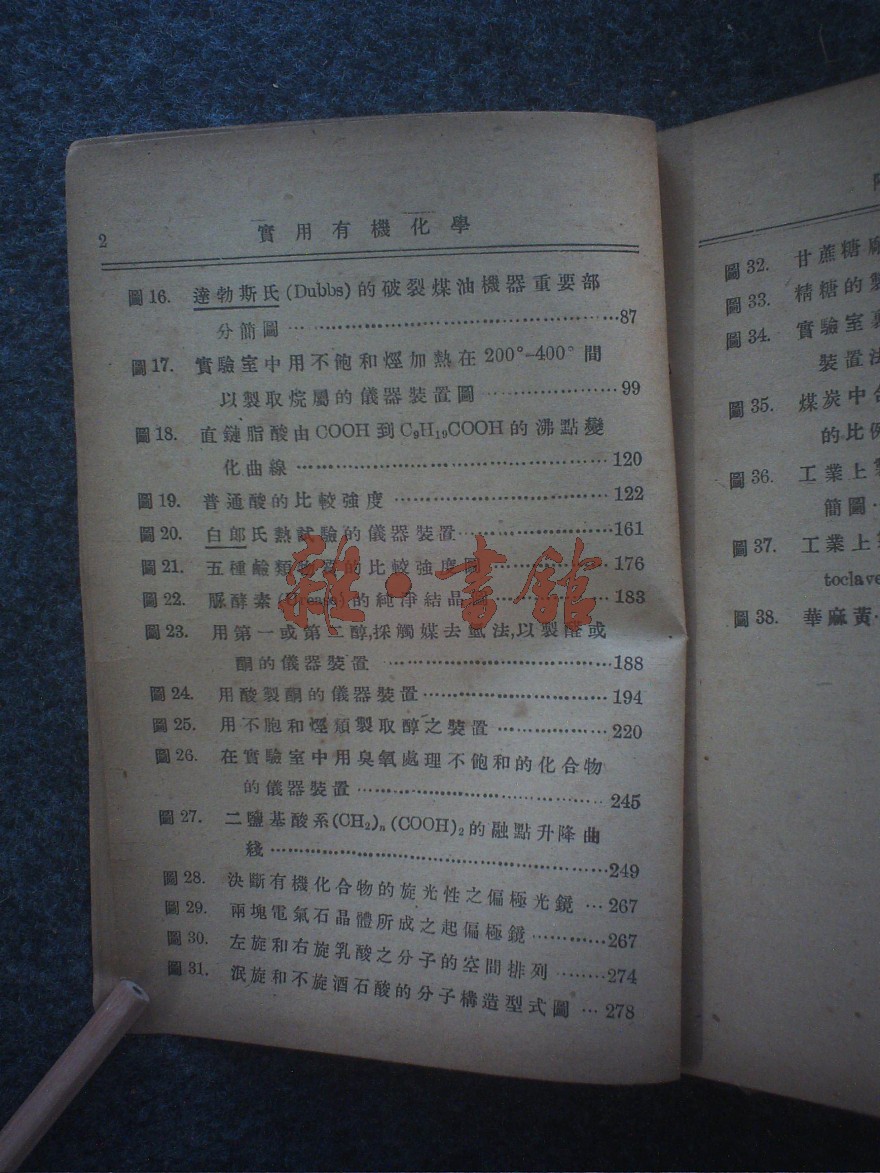 2 實用有機化學
圖16. 達勃斯氏(Dubbs)的破裂煤油機器重要部
分簡圖 ……………………………………87
圖17. 實驗室中用不飽和烴加熱在200°–400°間
以製取烷屬的儀器裝置圖 ……………99
圖18. 直鏈脂酸由COOH到C₉H₁₉COOH的沸點變
化曲線 ……………………………………120
圖19. 普通酸的比較強度 ……………………122
圖20. 白郎氏熱試驗的儀器裝置 ……………161
圖21. 五種鹼類物質的比較強度圖 …………176
圖22. 脲酵素(Urease)的純淨結晶圖 …………183
圖23. 用第一或第二醇,採觸媒去氫法,以製醛或
酮的儀器裝置 ……………………………188
圖24. 用酸製酮的儀器裝置 …………………194
圖25. 用不胞和烴頑製取醇之裝置 …………220
圖26. 在實驗室中用臭氧處理不飽和的化合物
的儀器裝置 ………………………………245
圖27. 二鹽基酸系(CH₂)ₙ(COOH)₂的融點升降曲
綫 …………………………………………249
圖28. 決斷有機化合物的旋光性之偏極光鏡 …267
圖29. 兩塊電氣石晶體所成之起偏極鏡 ………267
圖30. 左旋和右旋乳酸之分子的空間排列 ……274
圖31. 泯旋和不旋酒石酸的分子構造型式圖 …278
雜·書館
圖32. 甘蔗糖廠
圖33. 精糖的製
圖34. 實驗室裏
裝置法
圖35. 煤炭中含
的比例
圖36. 工業上製
簡圖
圖37. 工業上
toclave
圖38. 華麻黃